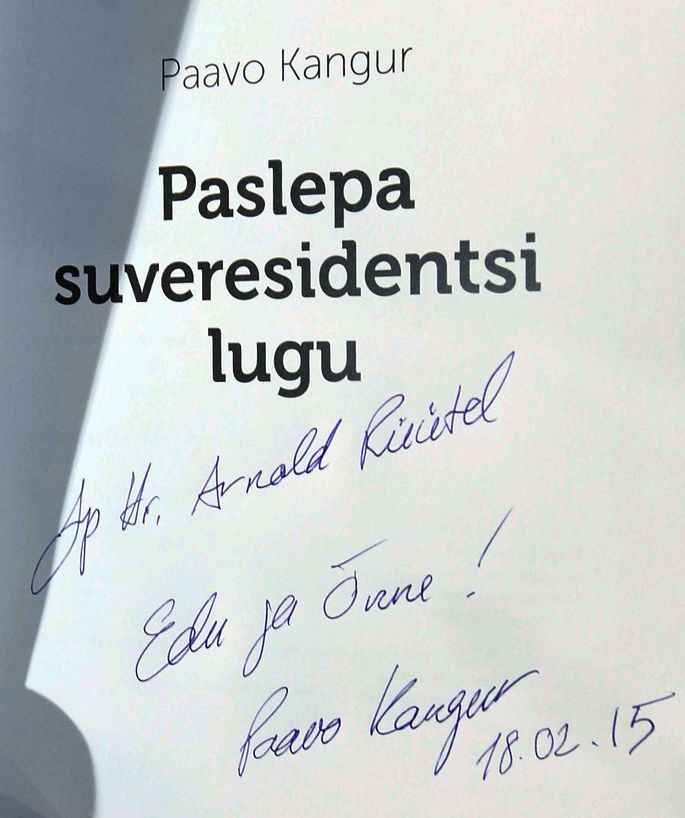 Paavo Kangur
Paslepa
suveresidentsi
lugu
Hr. Arnold Rüütel
Edu ja Õnne!
Paavo Kangur
18.02.15